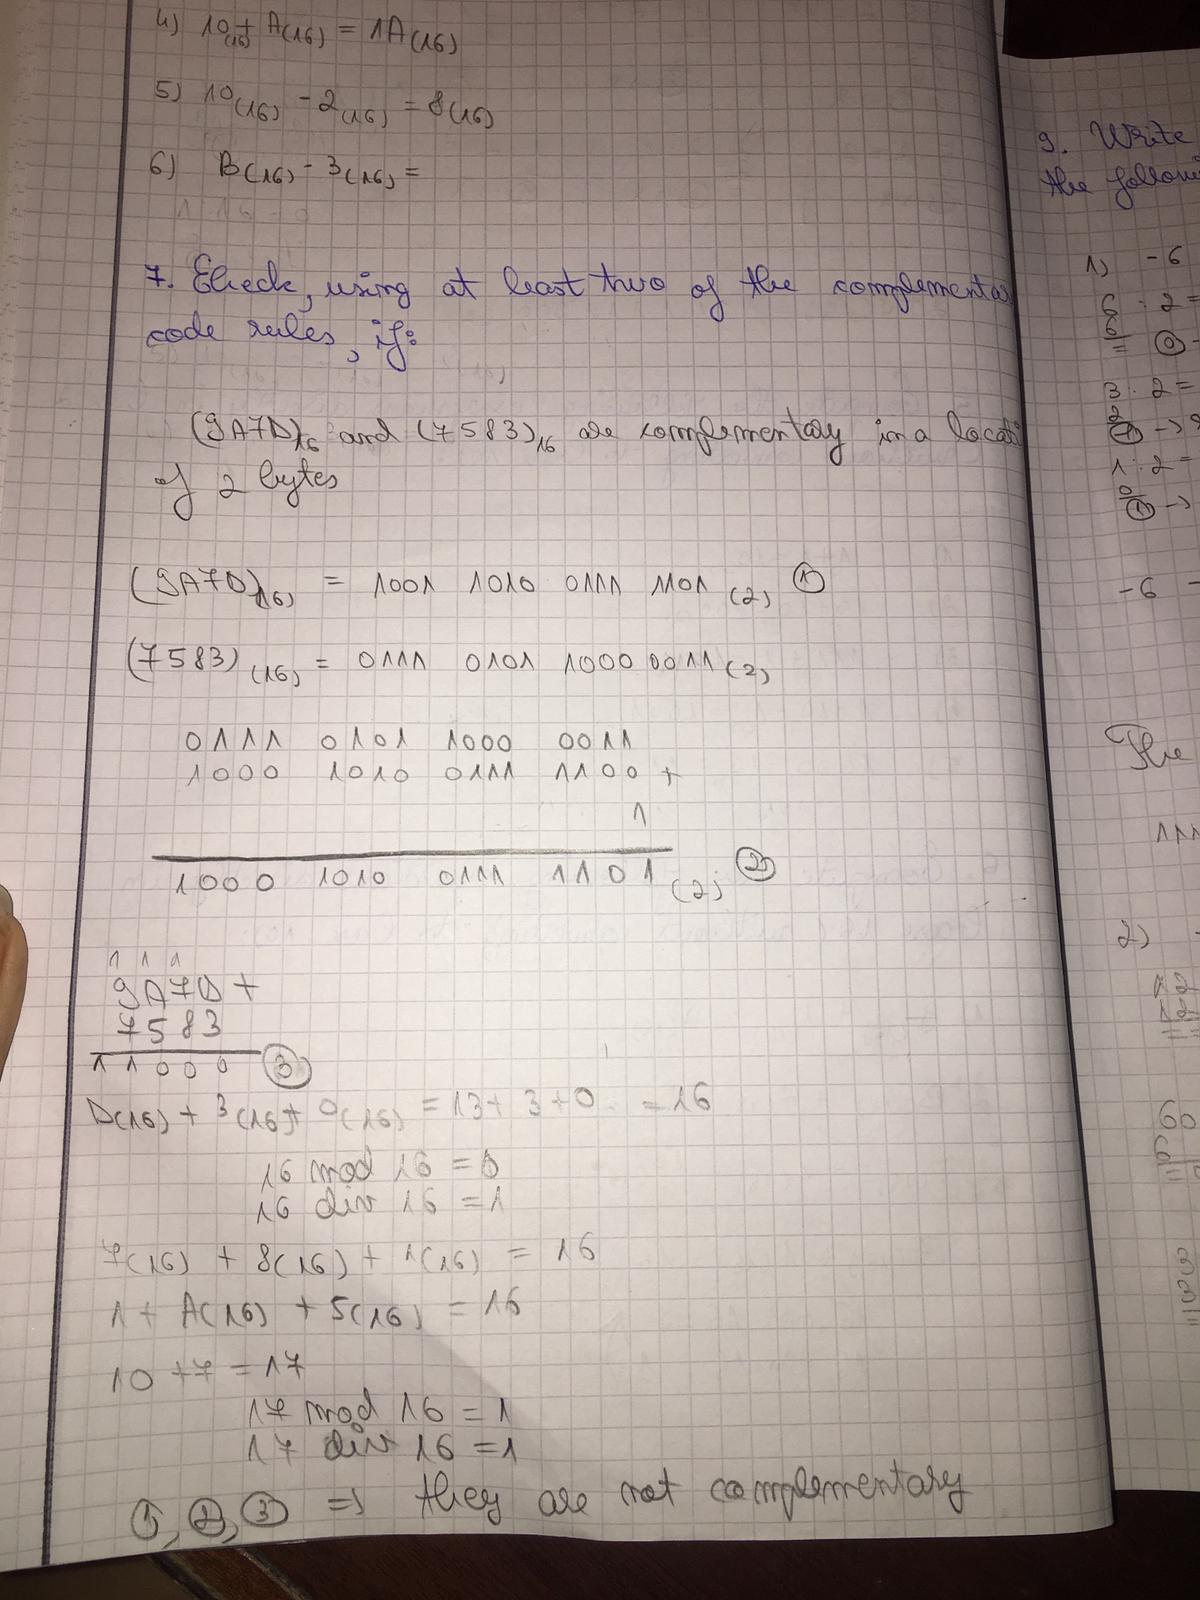 4) 10(16) + A(16) = 1A(16)
5) 10(16) - 2(16) = 8(16)
6) B(16) - 3(16) =
7. Check, using at least two of the complementa
code rules, if:
(9A7D)16 and (7583)16 are complementary in a locati
of 2 bytes
(9A7D)(16) = 1001 1010 0111 1101 (2) ①
(7583)(16) = 0111 0101 1000 0011 (2)
0111 0101 1000 0011
1000 1010 0111 1100 +
1
1000 1010 0111 1101 (2) ②
1 1 1
9A7D +
7583
11000 ③
D(16) + 3(16) + 0(16) = 13 + 3 + 0 = 16
16 mod 16 = 0
16 div 16 = 1
7(16) + 8(16) + 1(16) = 16
1 + A(16) + 5(16) = 16
10 + 7 = 17
17 mod 16 = 1
17 div 16 = 1
①, ②, ③ => they are not complementary
9. Write
the followi
1) -6
6 : 2 =
6
= ⓪
3 : 2 =
2
① ->
1 : 2 =
0
① ->
-6
The
111
2)
60
6